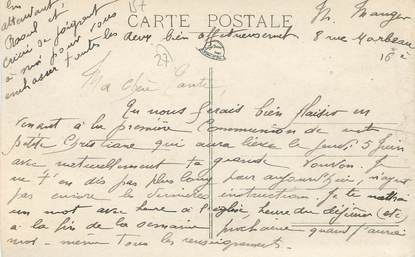 En
attendant
Raoul et
Cricri se joignent
à moi pour vous
embrasser toutes les deux bien affectueusement
CARTE POSTALE
M. Manger
8 rue Marbeau
16e
Ma chère Tante,
Tu nous ferais bien plaisir en
venant à la première Communion de notre
petite Christiane qui aura lieu le jeudi 5 Juin
avec naturellement ta grande Vonvon. Je
ne t'en dis pas plus long pour aujourd'hui, n'ayant
pas encore les dernières instructions. Je te mettrai
un mot avec heure à l'église, heure du déjeuner (etc)
à la fin de la semaine prochaine quand j'aurai
moi-même tous les renseignements.